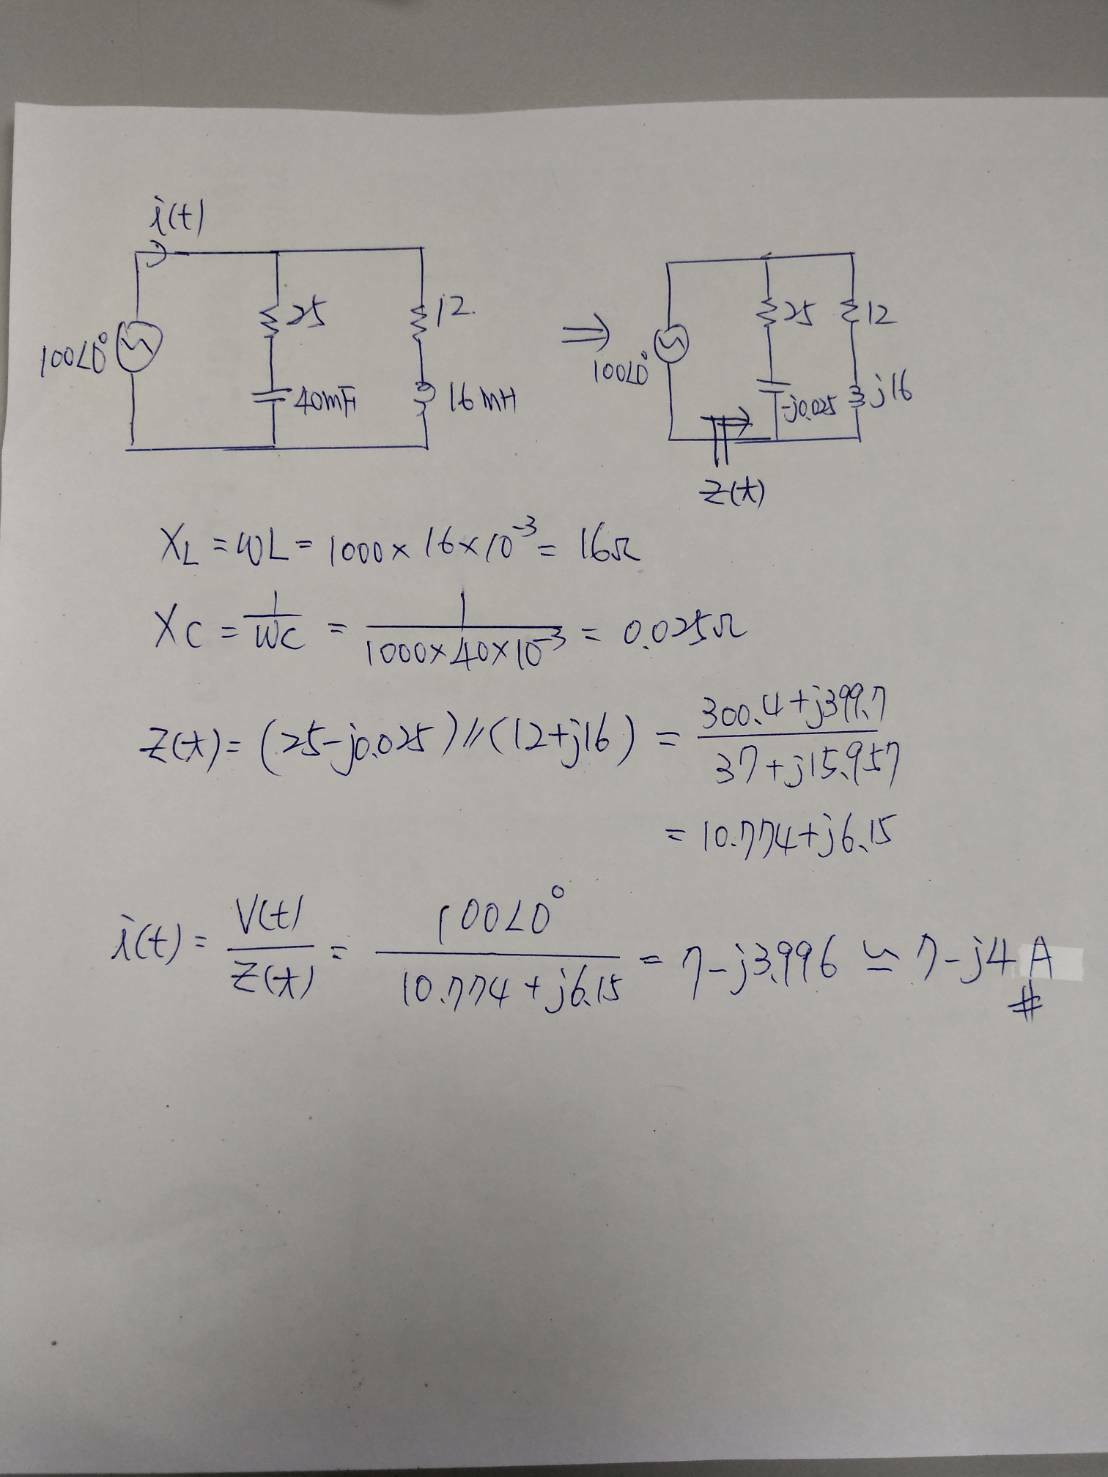 i(t)
100∠0° 25 12 40mF 16mH
⇒
100∠0° 25 12 -j0.025 j16
Z(t)
XL = ωL = 1000 × 16 × 10⁻³ = 16Ω
XC = 1/ωC = 1/(1000×40×10⁻³) = 0.025Ω
Z(t) = (25-j0.025)//(12+j16) = (300.4+j399.7)/(37+j15.957)
= 10.774+j6.15
i(t) = V(t)/Z(t) = 100∠0°/(10.774+j6.15) = 7-j3.996 ≃ 7-j4 A
#